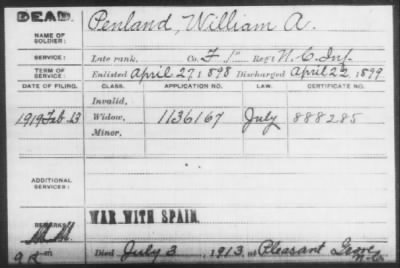 DEAD.
NAME OF SOLDIER: Penland, William A.
SERVICE: Late rank, Co. F 1" Reg't N.C. Inf.
TERM OF SERVICE: Enlisted April 27, 1898 Discharged April 22, 1899
DATE OF FILING. CLASS. APPLICATION NO. LAW. CERTIFICATE NO.
Invalid,
1919 Feb 13 Widow, 1136167 July 888285
Minor,
ADDITIONAL SERVICES:
WAR WITH SPAIN.
REMARKS:
Died July 3, 1913, at Pleasant Grove
N.C.